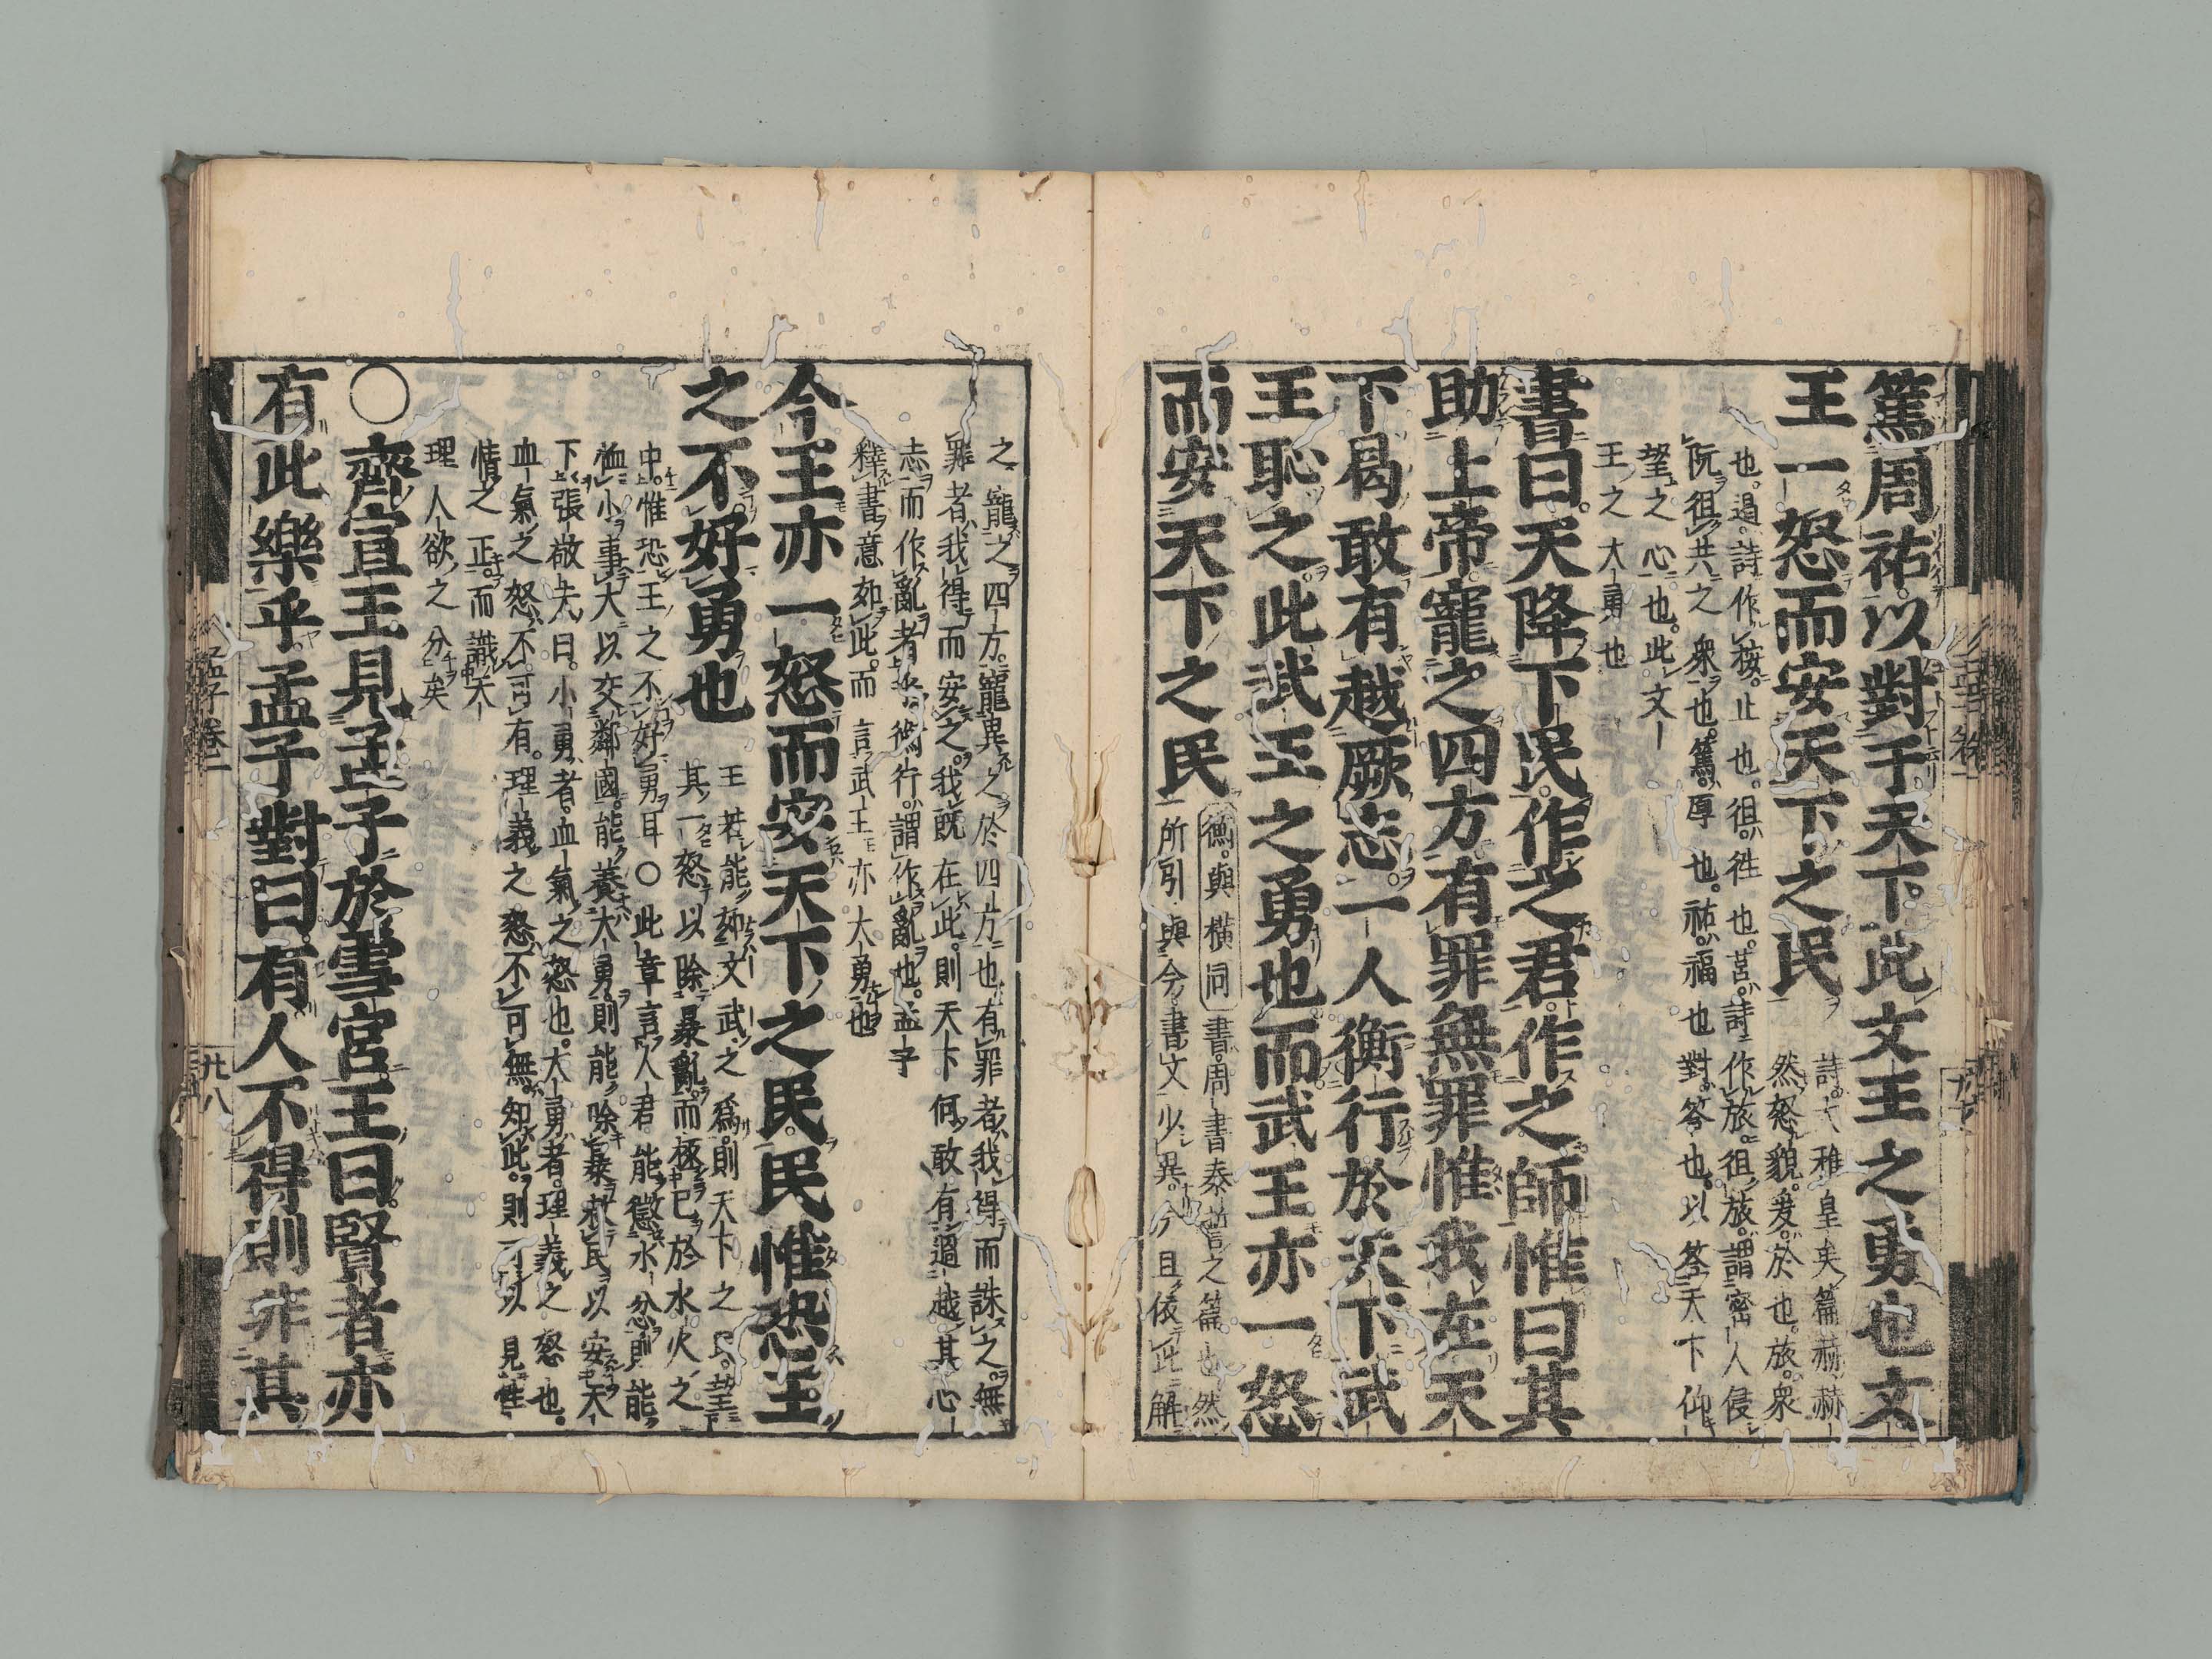 篤周祜以對于天下此文王之勇也文
王一怒而安天下之民
詩大雅皇矣篇赫赫
然怒貌爰於也旅衆
也遏詩作按止也徂徃也莒詩作旅徂旅謂密人侵
阮徂共之衆也篤厚也祜福也對答也以答天下仰
望之心也此文
王之大勇也
書曰天降下民作之君作之師惟曰其
助上帝寵之四方有罪無罪惟我在天
下曷敢有越厥志一人衡行於天下武
王恥之此武王之勇也而武王亦一怒
而安天下之民
衡與橫同書周書泰誓之篇也然
所引與今書文少異今且依此解
之寵之四方寵異之於四方也有罪者我得而誅之無
罪者我得而安之我既在此則天下何敢有過越其心
志而作亂者乎衡行謂作亂也孟子
釋書意如此而言武王亦大勇也
今王亦一怒而安天下之民民惟恐王
之不好勇也
王若能如文武之爲則天下之民望
其一怒以除暴亂而極己於水火之
中惟恐王之不好勇耳○此章言人君能懲小忿則能
恤小事大以交鄰國能養大勇則能除暴救民以安天
下張敬夫曰小勇者血氣之怒也大勇者理義之怒也
血氣之怒不可有理義之怒不可無知此則可以見性
情之正而識天
理人欲之分矣
○齊宣王見孟子於雪宮王曰賢者亦
有此樂乎孟子對曰有人不得則非其
孟子卷二
廿八